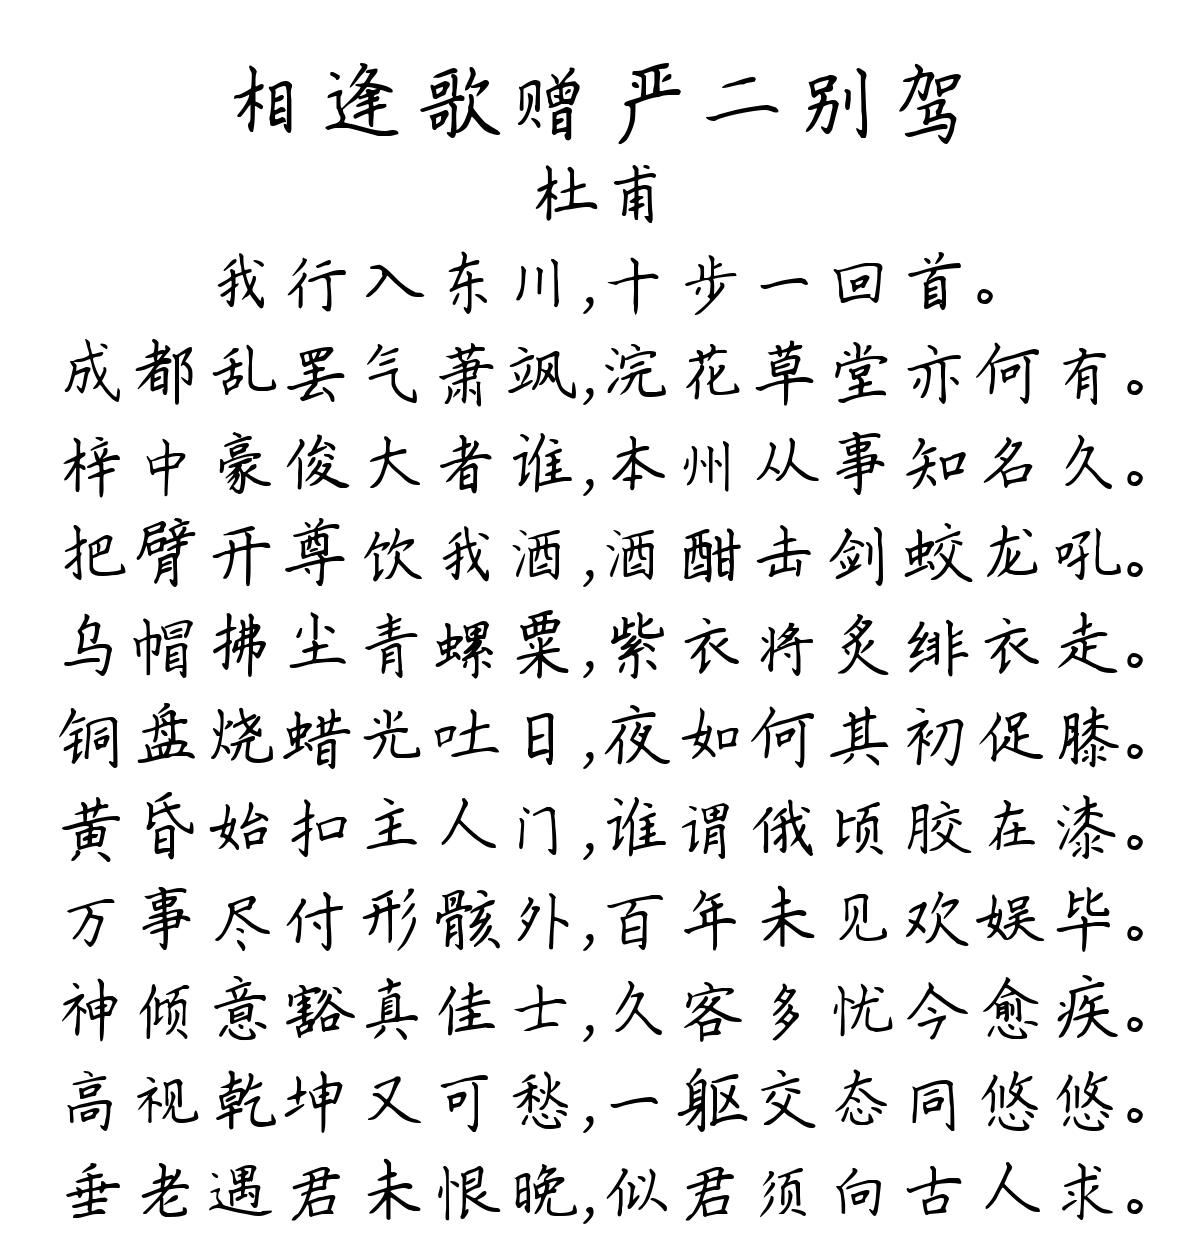 相逢歌赠严二别驾
杜甫
我行入东川,十步一回首。
成都乱罢气萧飒,浣花草堂亦何有。
梓中豪俊大者谁,本州从事知名久。
把臂开尊饮我酒,酒酣击剑蛟龙吼。
乌帽拂尘青螺粟,紫衣将炙绯衣走。
铜盘烧蜡光吐日,夜如何其初促膝。
黄昏始扣主人门,谁谓俄顷胶在漆。
万事尽付形骸外,百年未见欢娱毕。
神倾意豁真佳士,久客多忧今愈疾。
高视乾坤又可愁,一躯交态同悠悠。
垂老遇君未恨晚,似君须向古人求。